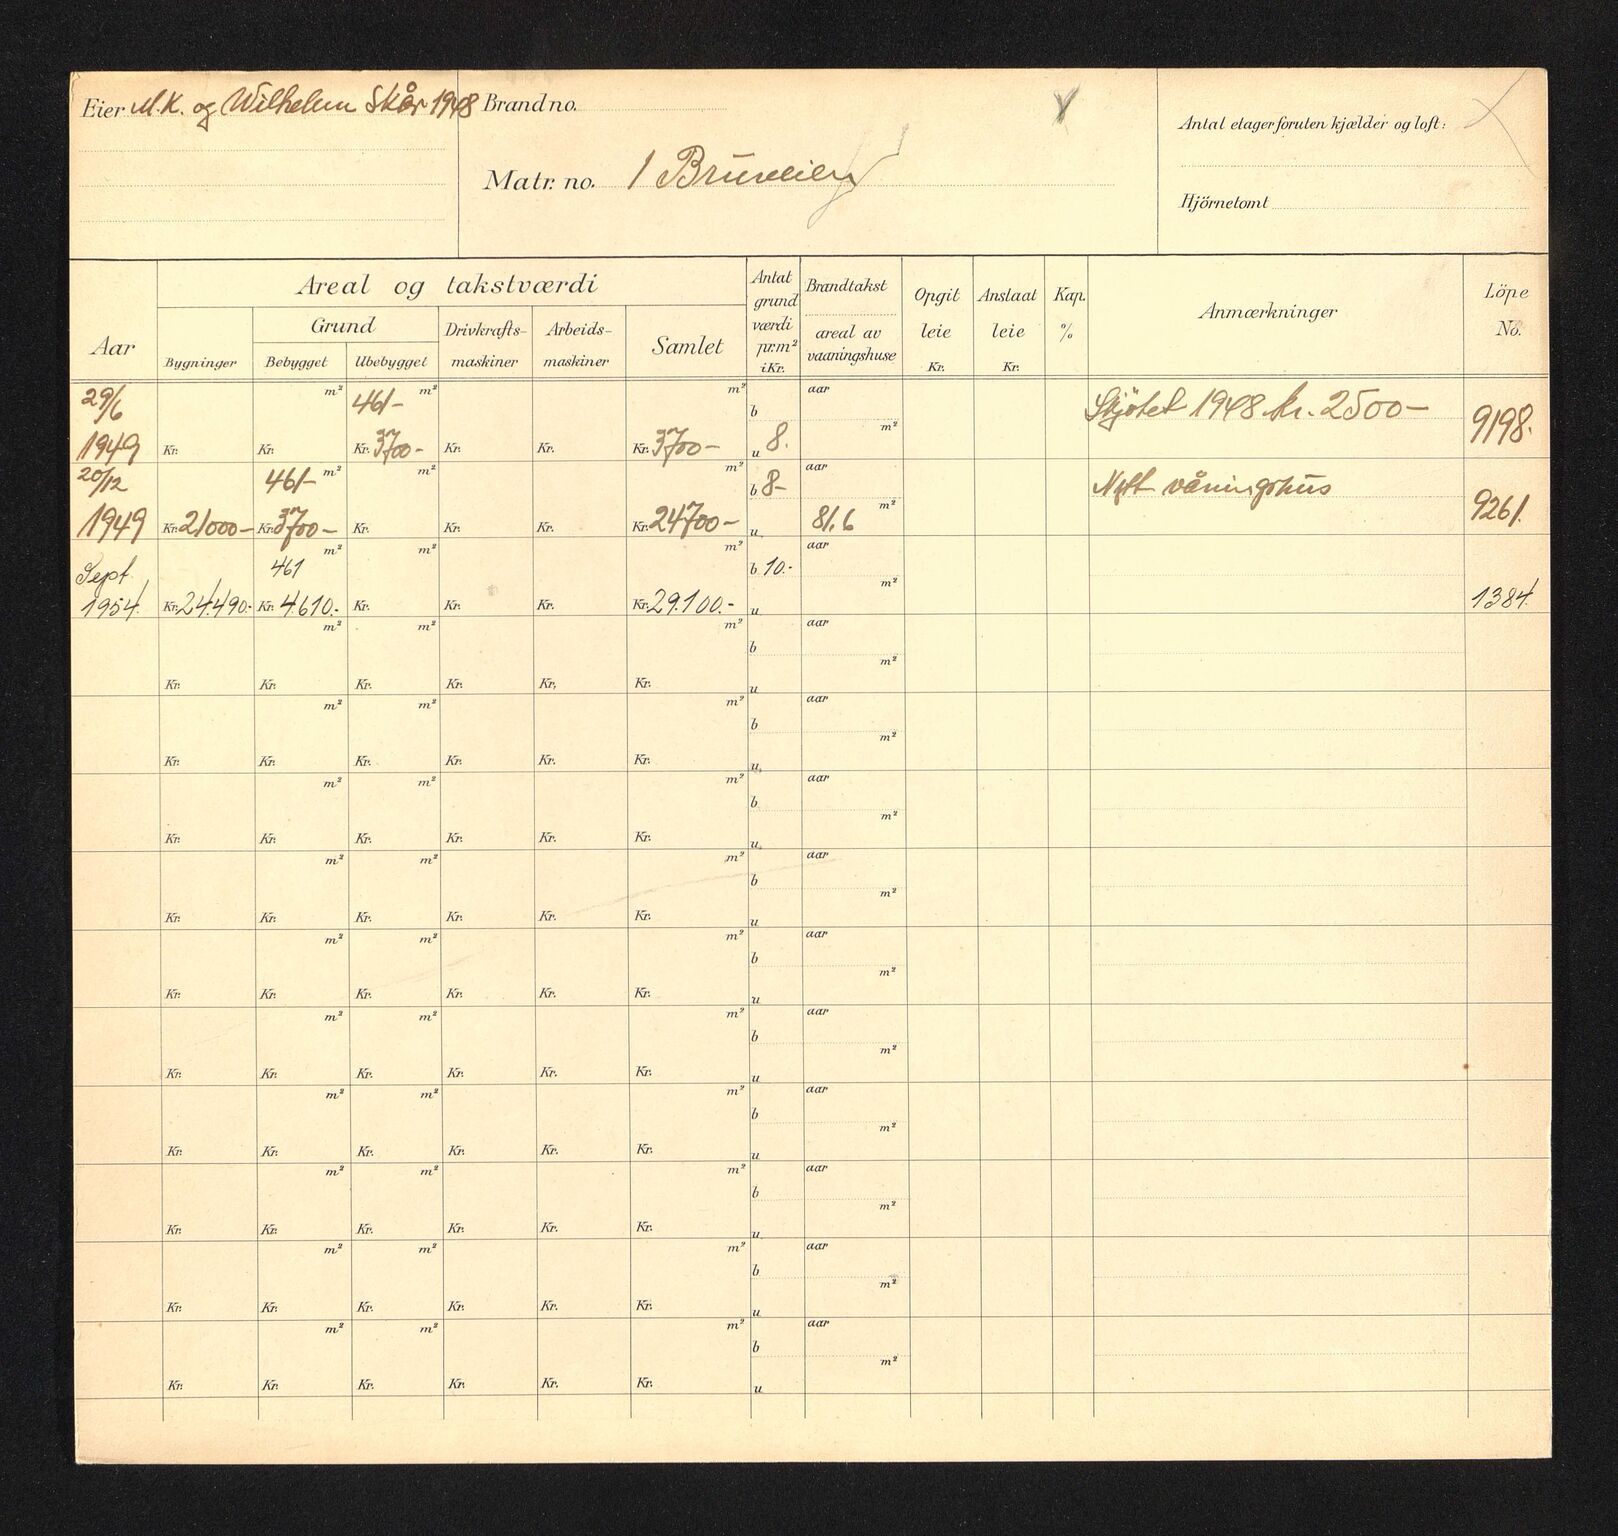 Eier M.K. og Wilhelm Skår 1948
Brand no.
Matr. no. 1 Bruveien
Antal etager foruten kjælder og loft:
Hjörnetomt
Aar
Areal og takstværdi
Grund
Bygninger
Bebygget
Ubebygget
Drivkrafts-
maskiner
Arbeids-
maskiner
Samlet
Antat
grund
værdi
pr.m²
i Kr.
Brandtakst
areal av
vaaningshuse
Opgit
leie
Kr.
Anslaat
leie
Kr.
Kap.
%
Anmærkninger
Löpe
No.
29/6 m² 461- m² m² b aar Skjötet 1948 kr. 2500-
1949 Kr. Kr. Kr. 3700- Kr. Kr. Kr. 3700- u 8. m² 9198.
20/12 461- m² m² m² b 8- aar Nytt våningshus
1949 Kr. 21000- Kr. 3700- Kr. Kr. Kr. Kr. 24700- u 81.6 m² 9261.
Sept. 461 m² m² m² b 10.- aar
1954. Kr. 24.490.- Kr. 4.610.- Kr. Kr. Kr. Kr. 29.100.- u m² 1384.
m² m² m² b aar
Kr. Kr. Kr. Kr. Kr. Kr. u m²
m² m² m² b aar
Kr. Kr. Kr. Kr. Kr. Kr. u m²
m² m² m² b aar
Kr. Kr. Kr. Kr. Kr. Kr. u m²
m² m² m² b aar
Kr. Kr. Kr. Kr. Kr. Kr. u m²
m² m² m² b aar
Kr. Kr. Kr. Kr. Kr. Kr. u m²
m² m² m² b aar
Kr. Kr. Kr. Kr. Kr. Kr. u m²
m² m² m² b aar
Kr. Kr. Kr. Kr. Kr. Kr. u m²
m² m² m² b aar
Kr. Kr. Kr. Kr. Kr. Kr. u m²
m² m² m² b aar
Kr. Kr. Kr. Kr. Kr. Kr. u m²
m² m² m² b aar
Kr. Kr. Kr. Kr. Kr. Kr. u m²